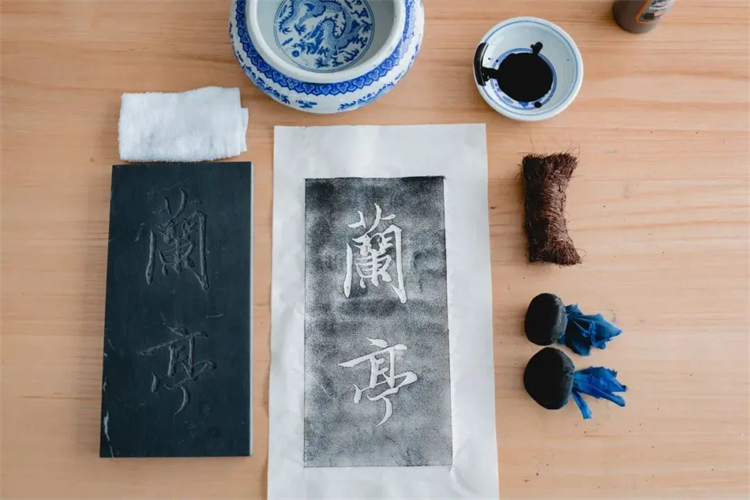 蘭
亭
蘭
亭